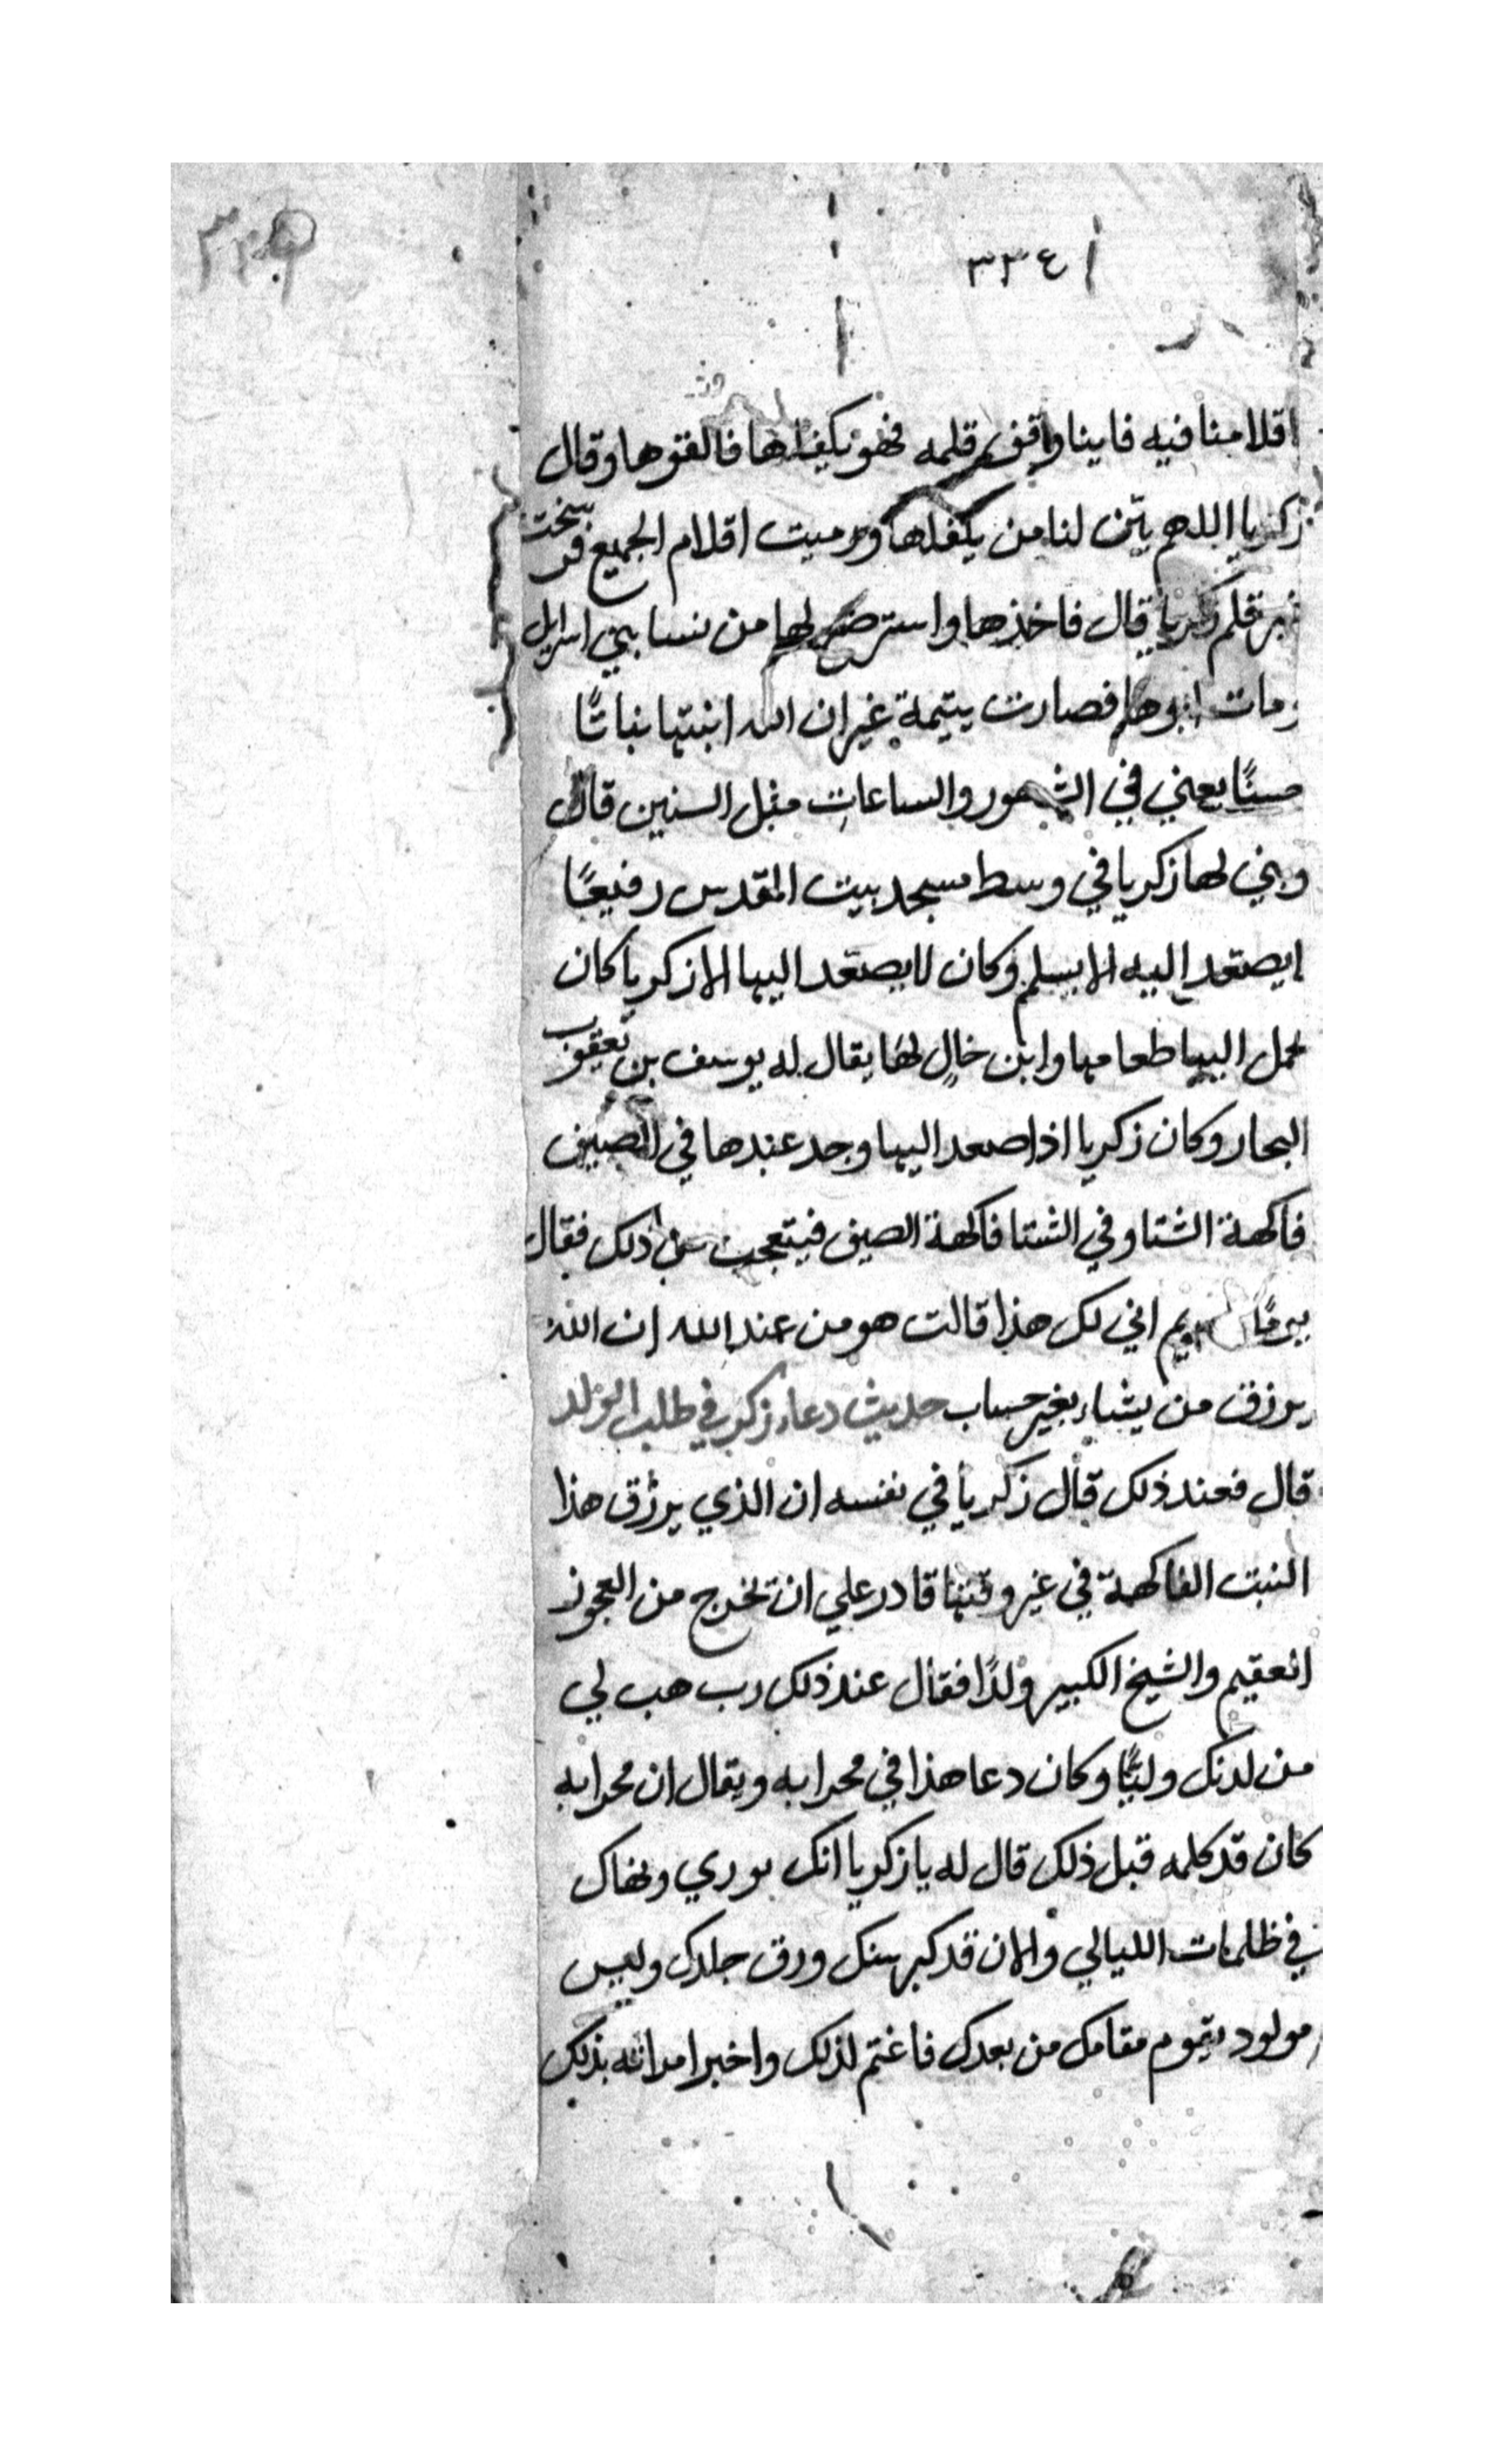 ٣٣٤
اقلامنا فيه فاينا واقف قلمه فهو يكفلها فالقوها وقال
زكريا اللهم بين لنا من يكفلها ورميت اقلام الجميع فرسخت
غير قلم زكريا قال فاخذها واسترضع لها من نسا بني اسرايل
ومات ابوها فصارت يتيمة غير ان الله انبتها نباتًا
حسنًا يعني في الشهور والساعات مثل السنين قال
وبني لها زكريا في وسط مسجد بيت المقدس رفيعًا
لا يصعد اليه الا بسلم وكان لا يصعد اليها الا زكريا كان
يحمل اليها طعامها وابن خال لها يقال له يوسف بن يعقوب
النجار وكان زكريا اذا صعد اليها وجد عندها في الصيف
فاكهة الشتا وفي الشتا فاكهة الصيف فيتعجب من ذلك فقال
مريم اني لك هذا قالت هو من عند الله ان الله
يرزق من يشاء بغير حساب حديث دعاء زكريا في طلب الولد
قال فعند ذلك قال زكريا في نفسه ان الذي يرزق هذا
النبت الفاكهة في غير وقتها قادر علي ان تخرج من العجوز
العقيم والشيخ الكبير ولدًا فقال عند ذلك رب هب لي
من لدنك وليًّا وكان دعا هذا في محرابه ويقال ان محرابه
كان قد كلمه قبل ذلك قال له يا زكريا انك
في ظلمات الليالي والان قد كبر سنك ورق جلدك وليس
مولود يقوم مقامك من بعدك فاغتم لذلك واخبر امراته بذلك